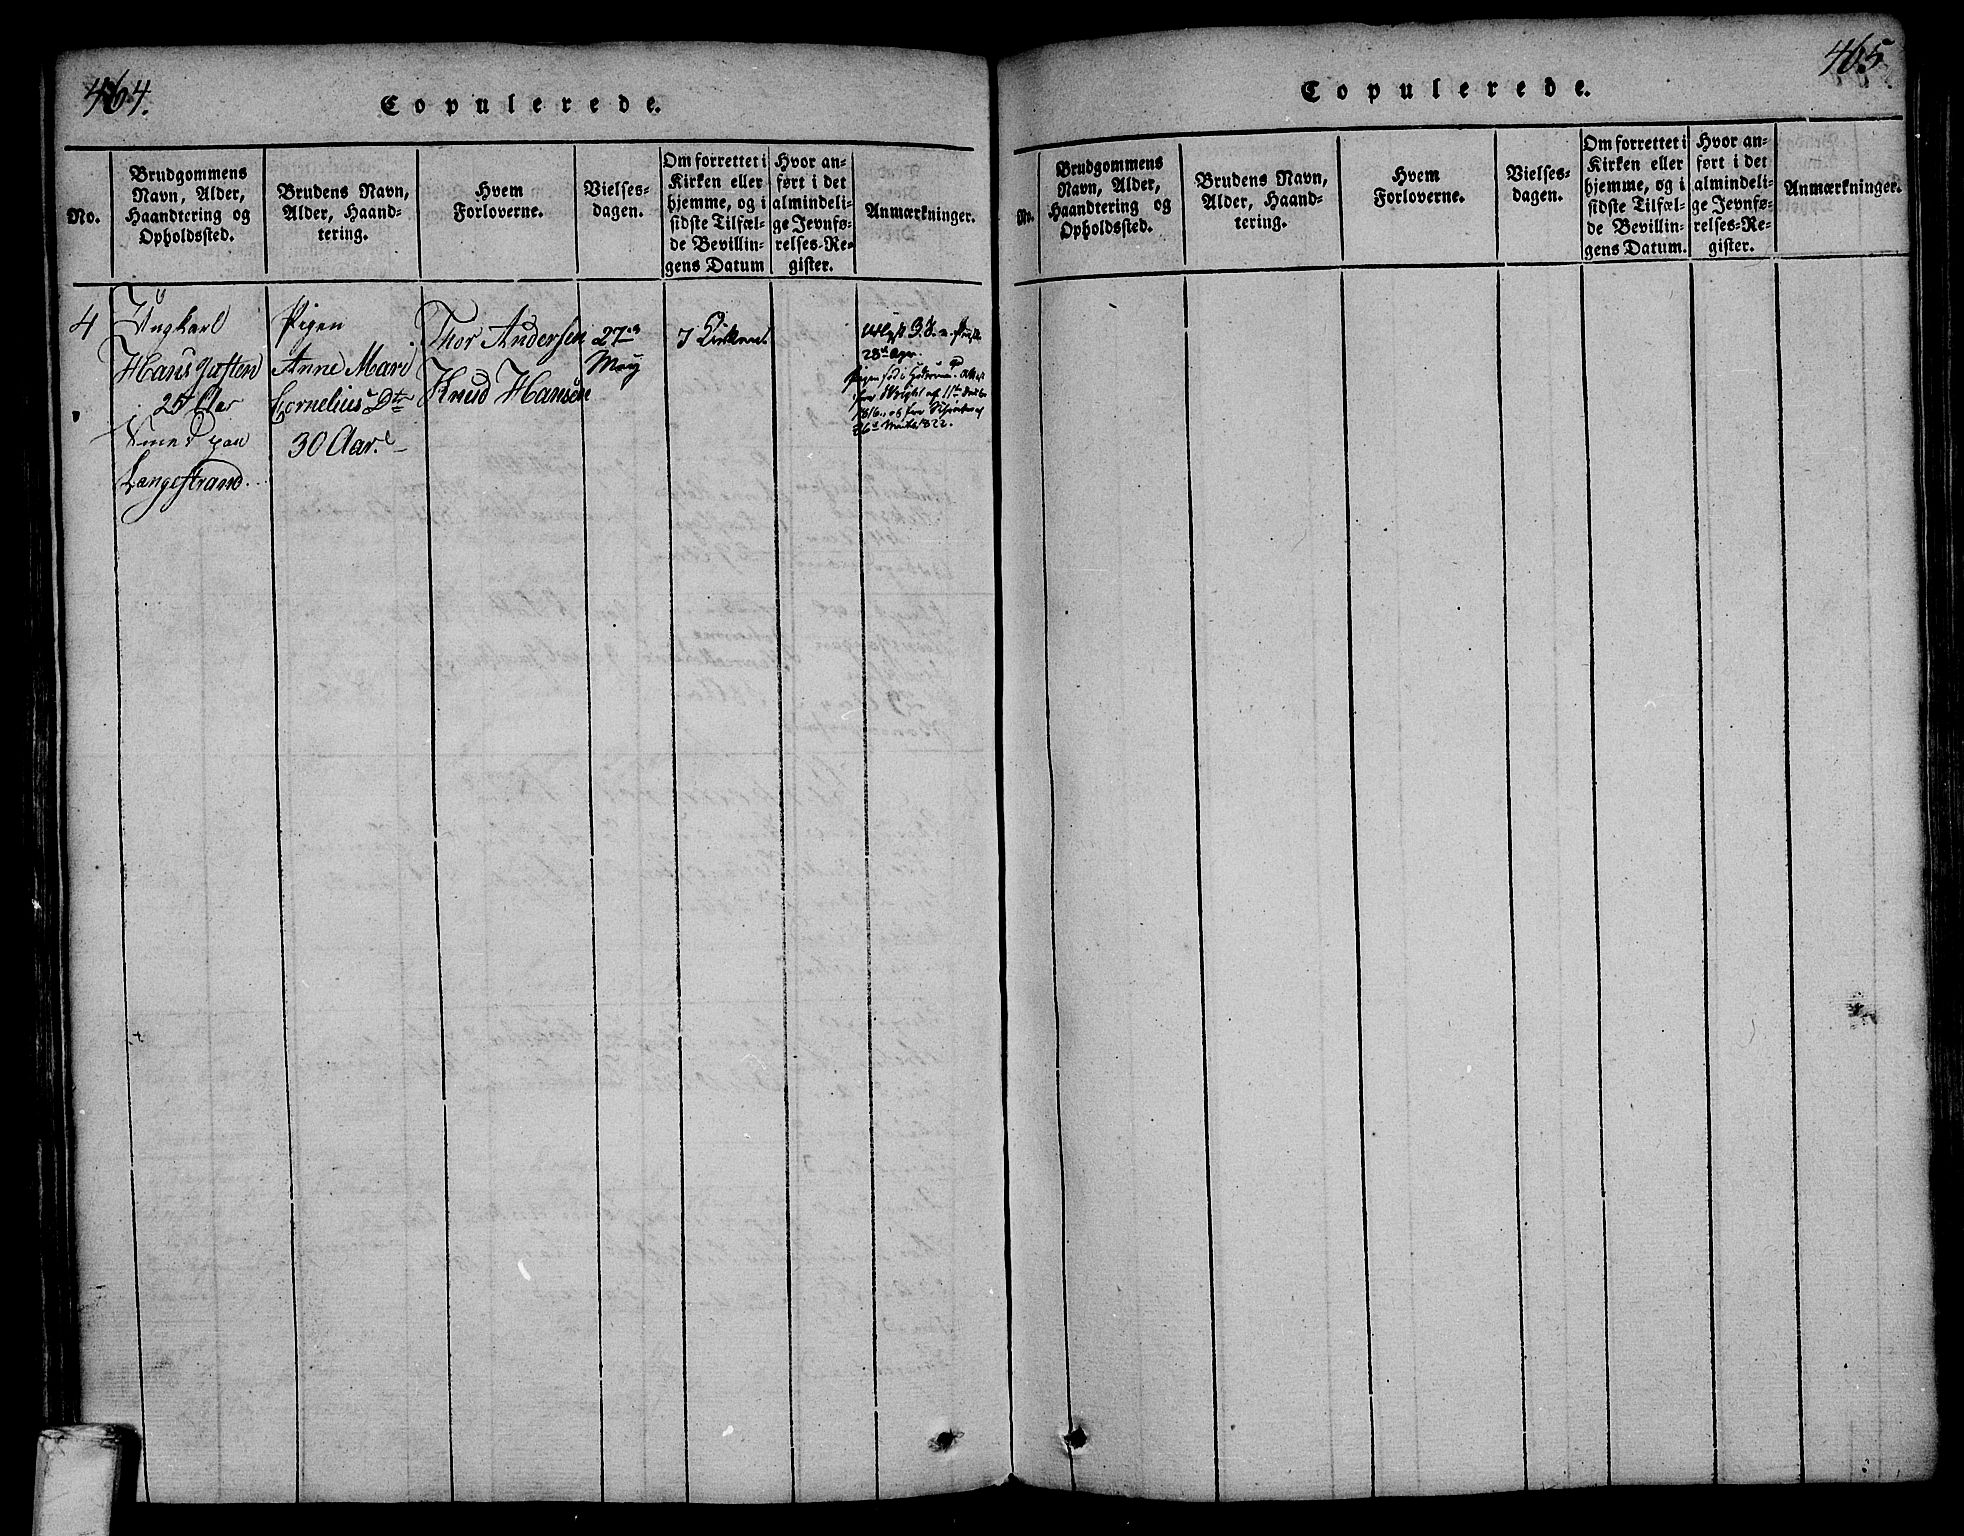 464.
Copulerede.
No.
Brudgommens
Navn, Alder,
Haandtering og
Opholdssted.
Brudens Navn,
Alder, Haand-
tering.
Hvem
Forloverne.
Vielses-
dagen.
Om forrettet i
Kirken eller
hjemme, og i
sidste Tilfæl-
de Bevillin-
gens Datum
Hvor an-
ført i det
almindeli-
ge Jevnfø-
relses-Re-
gister.
Anmærkninger.
4
Ungkarl
Hans
Aar
paa
Langestrand
Pigen
Anne Mari
Cornelius Dtr
30 Aar.
Thor Andersen
Knud Hansen
27de
May
I Kirken
28de Apr.
Pigen fød i
af 11te
1816, og for
1822.
465
Copulerede.
No.
Brudgommens
Navn, Alder,
Haandtering og
Opholdssted.
Brudens Navn,
Alder, Haand-
tering.
Hvem
Forloverne.
Vielses-
dagen.
Om forrettet i
Kirken eller
hjemme, og i
sidste Tilfæl-
de Bevillin-
gens Datum.
Hvor an-
ført i det
almindeli-
ge Jevnfø-
relses-Re-
gister.
Anmærkninger.